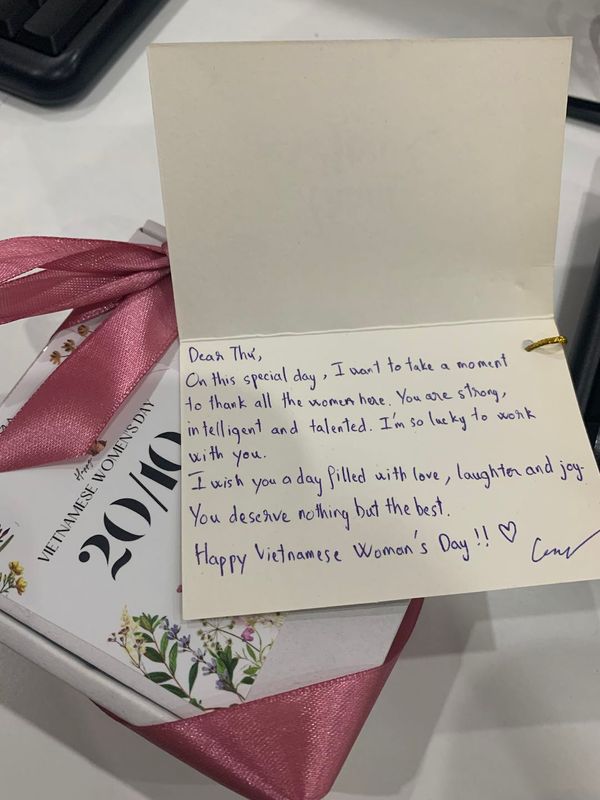 Dear Thư,
On this special day, I want to take a moment
to thank all the women here. You are strong,
intelligent and talented. I'm so lucky to work
with you.
I wish you a day filled with love, laughter and joy.
You deserve nothing but the best.
Happy Vietnamese Woman's Day!! ♡
Happy
VIETNAMESE WOMEN'S DAY
20/10